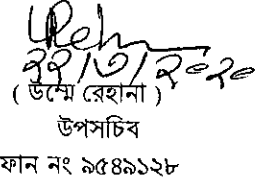 ২২/৩/২০২০
( উম্মে রেহানা )
উপসচিব
ফান নং ৯৫৪৯১২৮